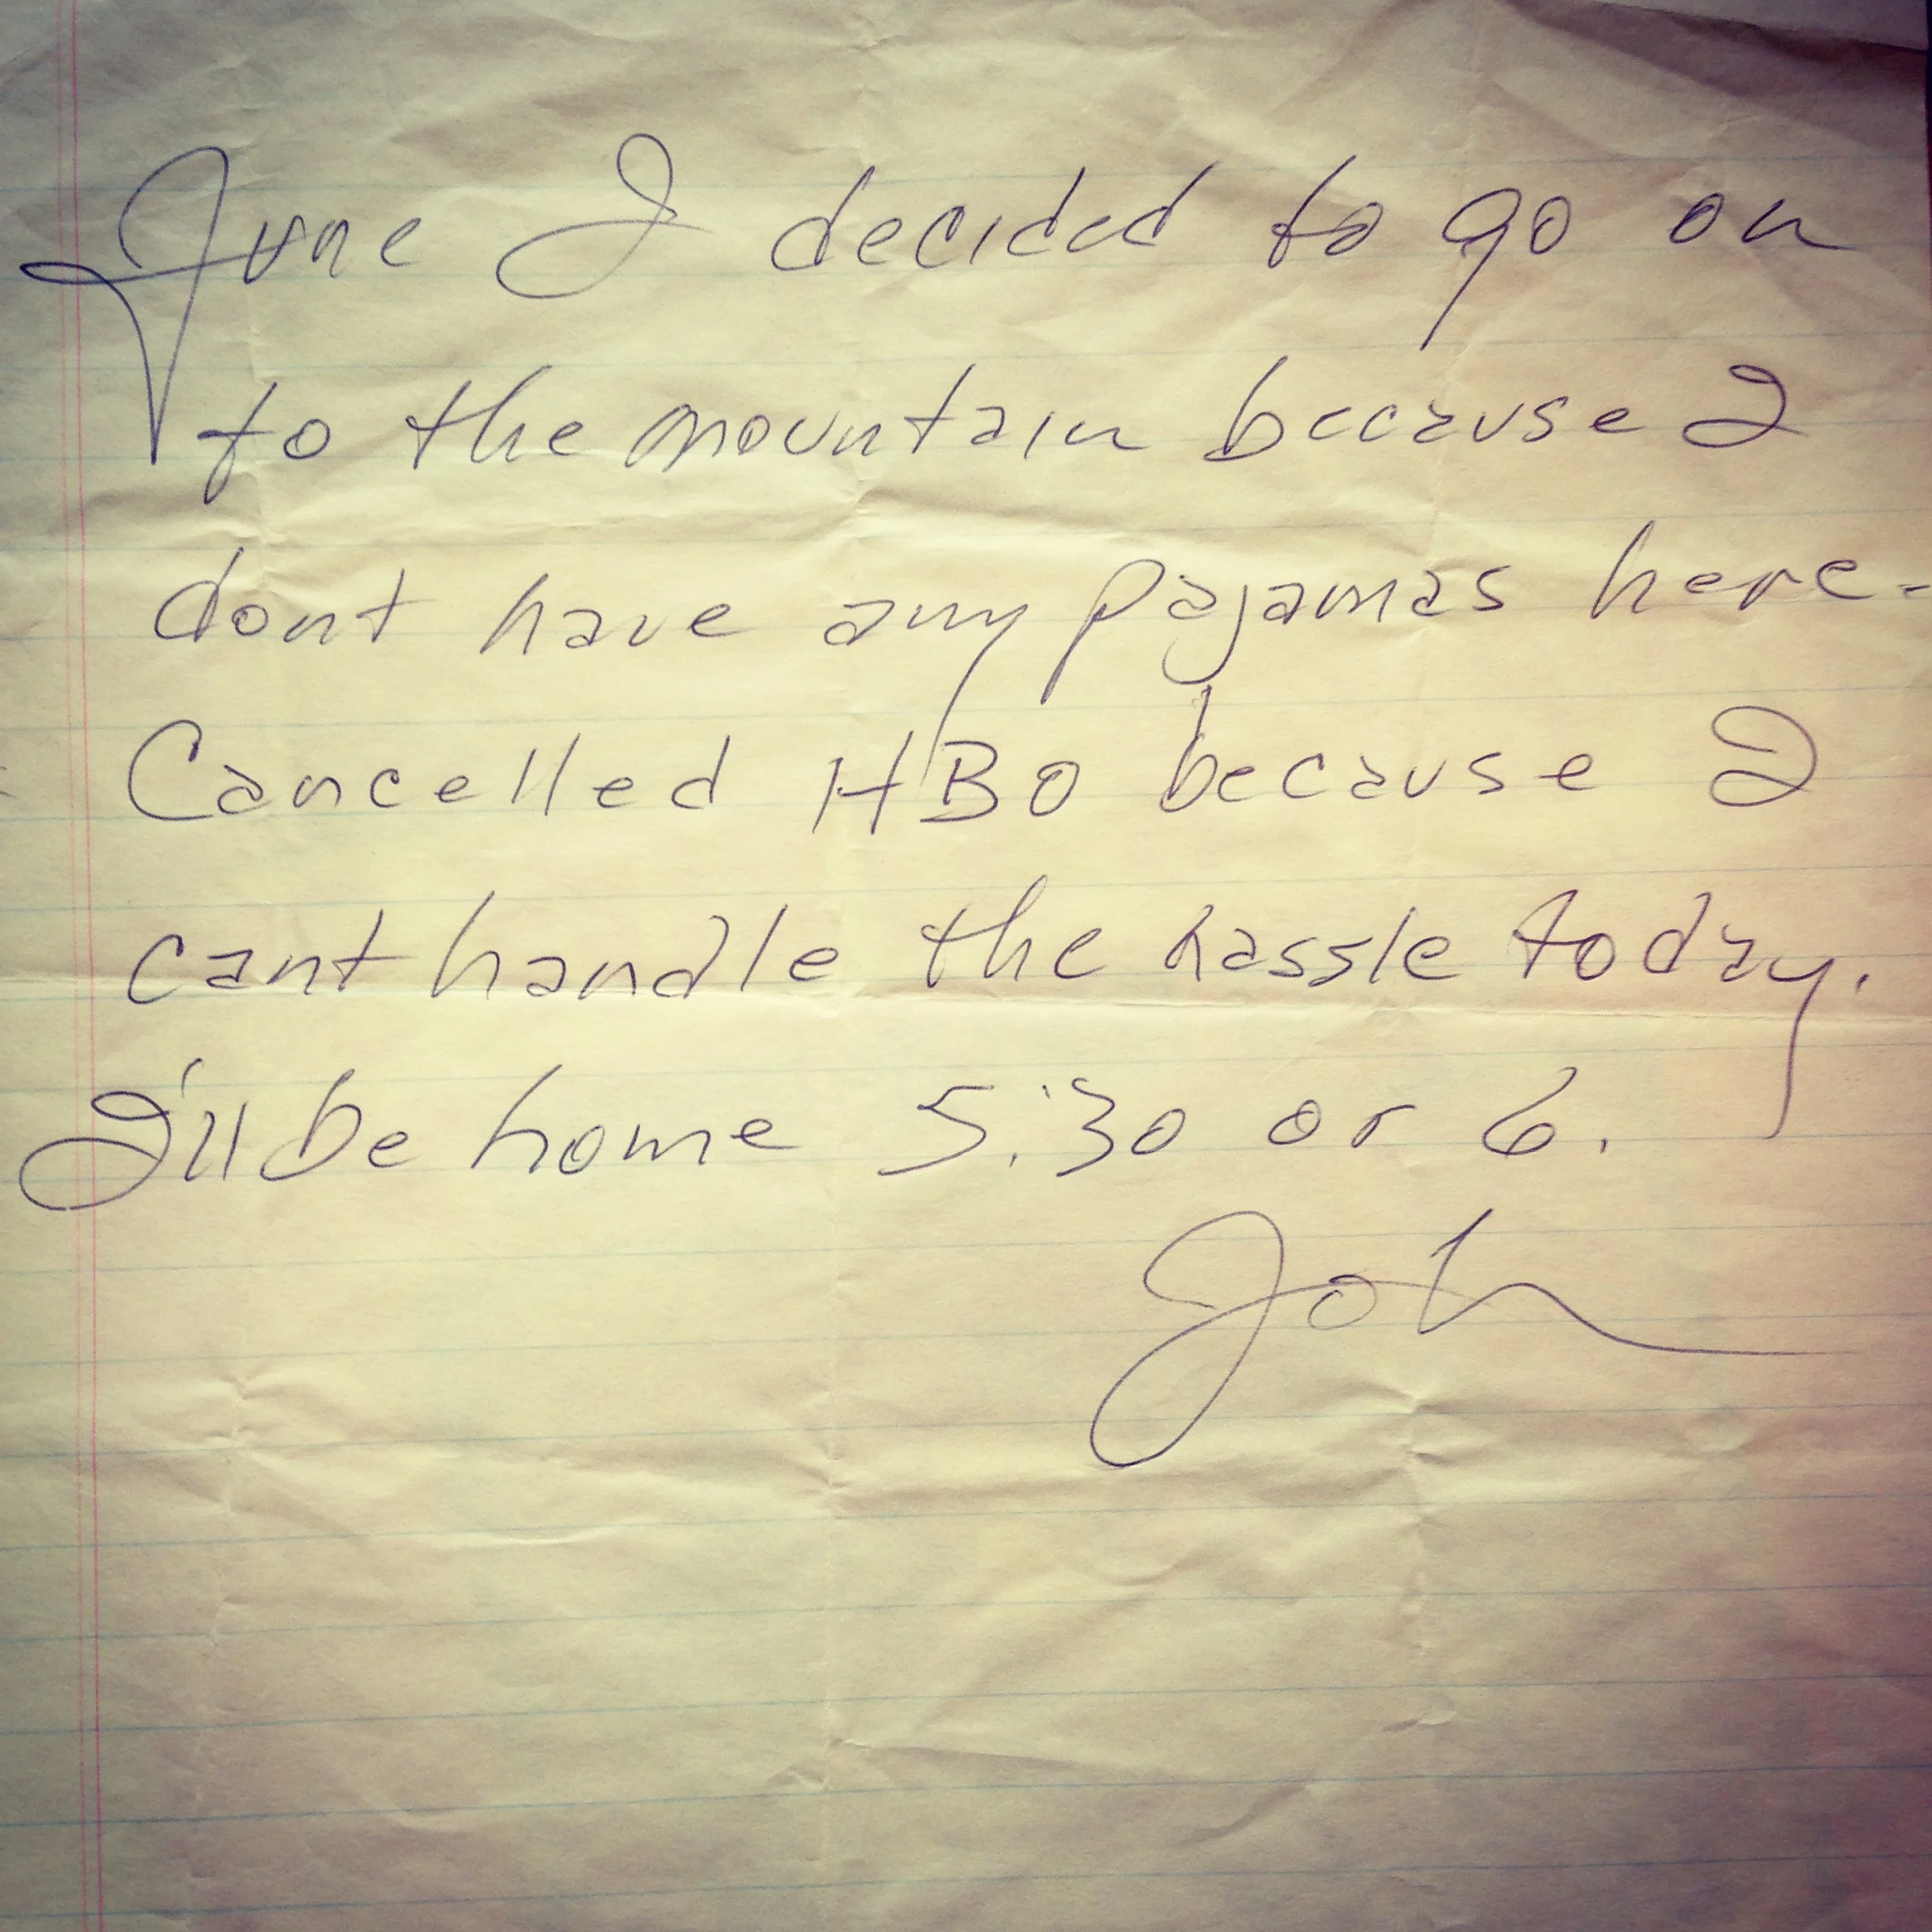 June I decided to go on
to the mountain because I
dont have any pajamas here -
Cancelled HBO because I
cant handle the hassle today.
I'll be home 5:30 or 6.
John